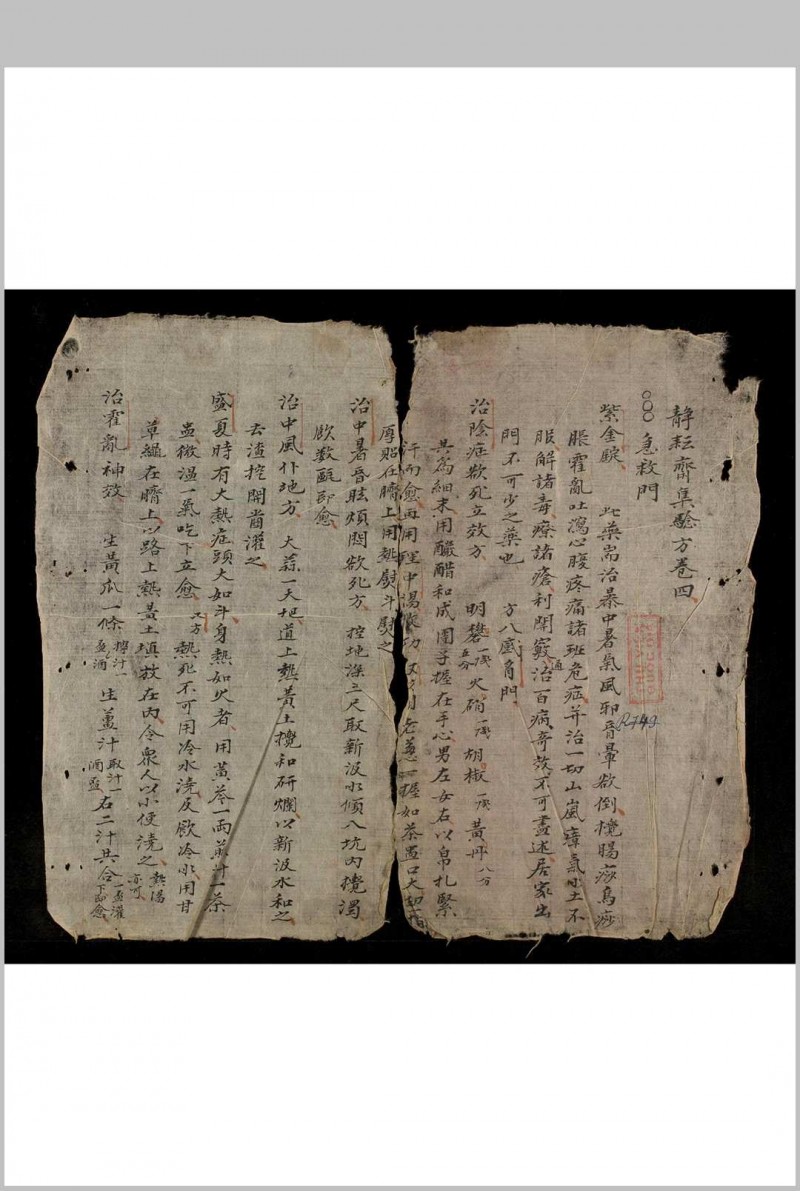 靜耘齋集驗方卷四
急救門
紫金錠 此藥耑治暴中暑氣風邪昏暈欲倒攪腸痧烏痧
脹霍亂吐瀉心腹疼痛諸班危症并治一切山嵐瘴氣水土不
服解諸毒療諸瘡利関竅通治百病奇效不可盡述居家出
門不可少之藥也 方入瘋角門
治陰症欲死立效方 明礬一錢五分 火硝一錢 胡椒一錢 黃丹八分
共為細末用釅醋和成團子握在手心男左女右以帛扎緊
汗而愈再用理中湯 方用老葱一握如茶盃口大切
厚貼在臍上用熱熨斗熨之
治中暑昏眩煩悶欲死方 挖地深三尺取新汲水傾入坑內攪濁
飲数甌即愈
治中風仆地方 大蒜一大把道上熱黃土攪和研爛以新汲水和之
去渣挖開齒灌之
盛夏時有大熱症頭大如斗身熱如火者用黃芩一兩煎汁一茶
盅微溫一氣吃下立愈 又方 熱死不可用冷水澆及飲冷水用甘
草繩在臍上以路上熱黃土填放在內令眾人以小便澆之 熱湯亦可
治霍亂神效 生黃瓜一條 搾汁一盃酒 生薑汁 取汁一酒盃 右二汁共合一盃灌下即愈
R749